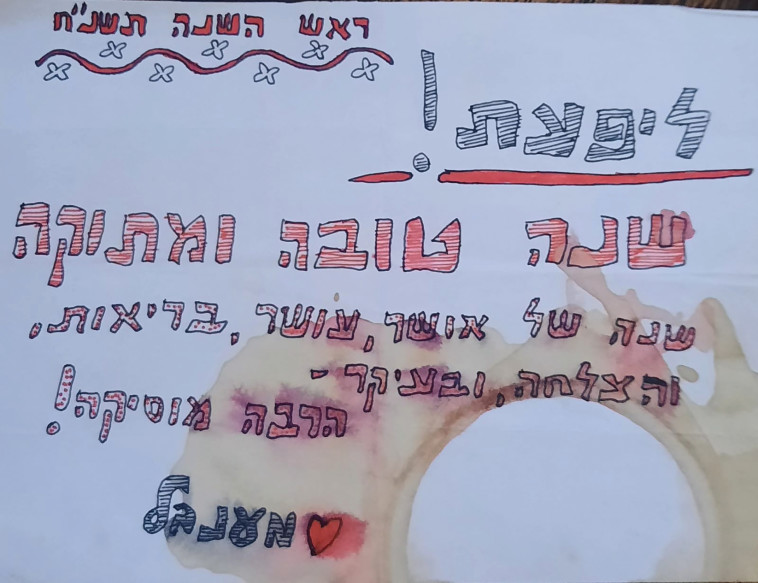 ראש השנה תשנ"ח
ליפעת!
שנה טובה ומתוקה
שנה של אושר, עושר, בריאות,
והצלחה, ובעיקר -
הרבה מוסיקה!
מענבל